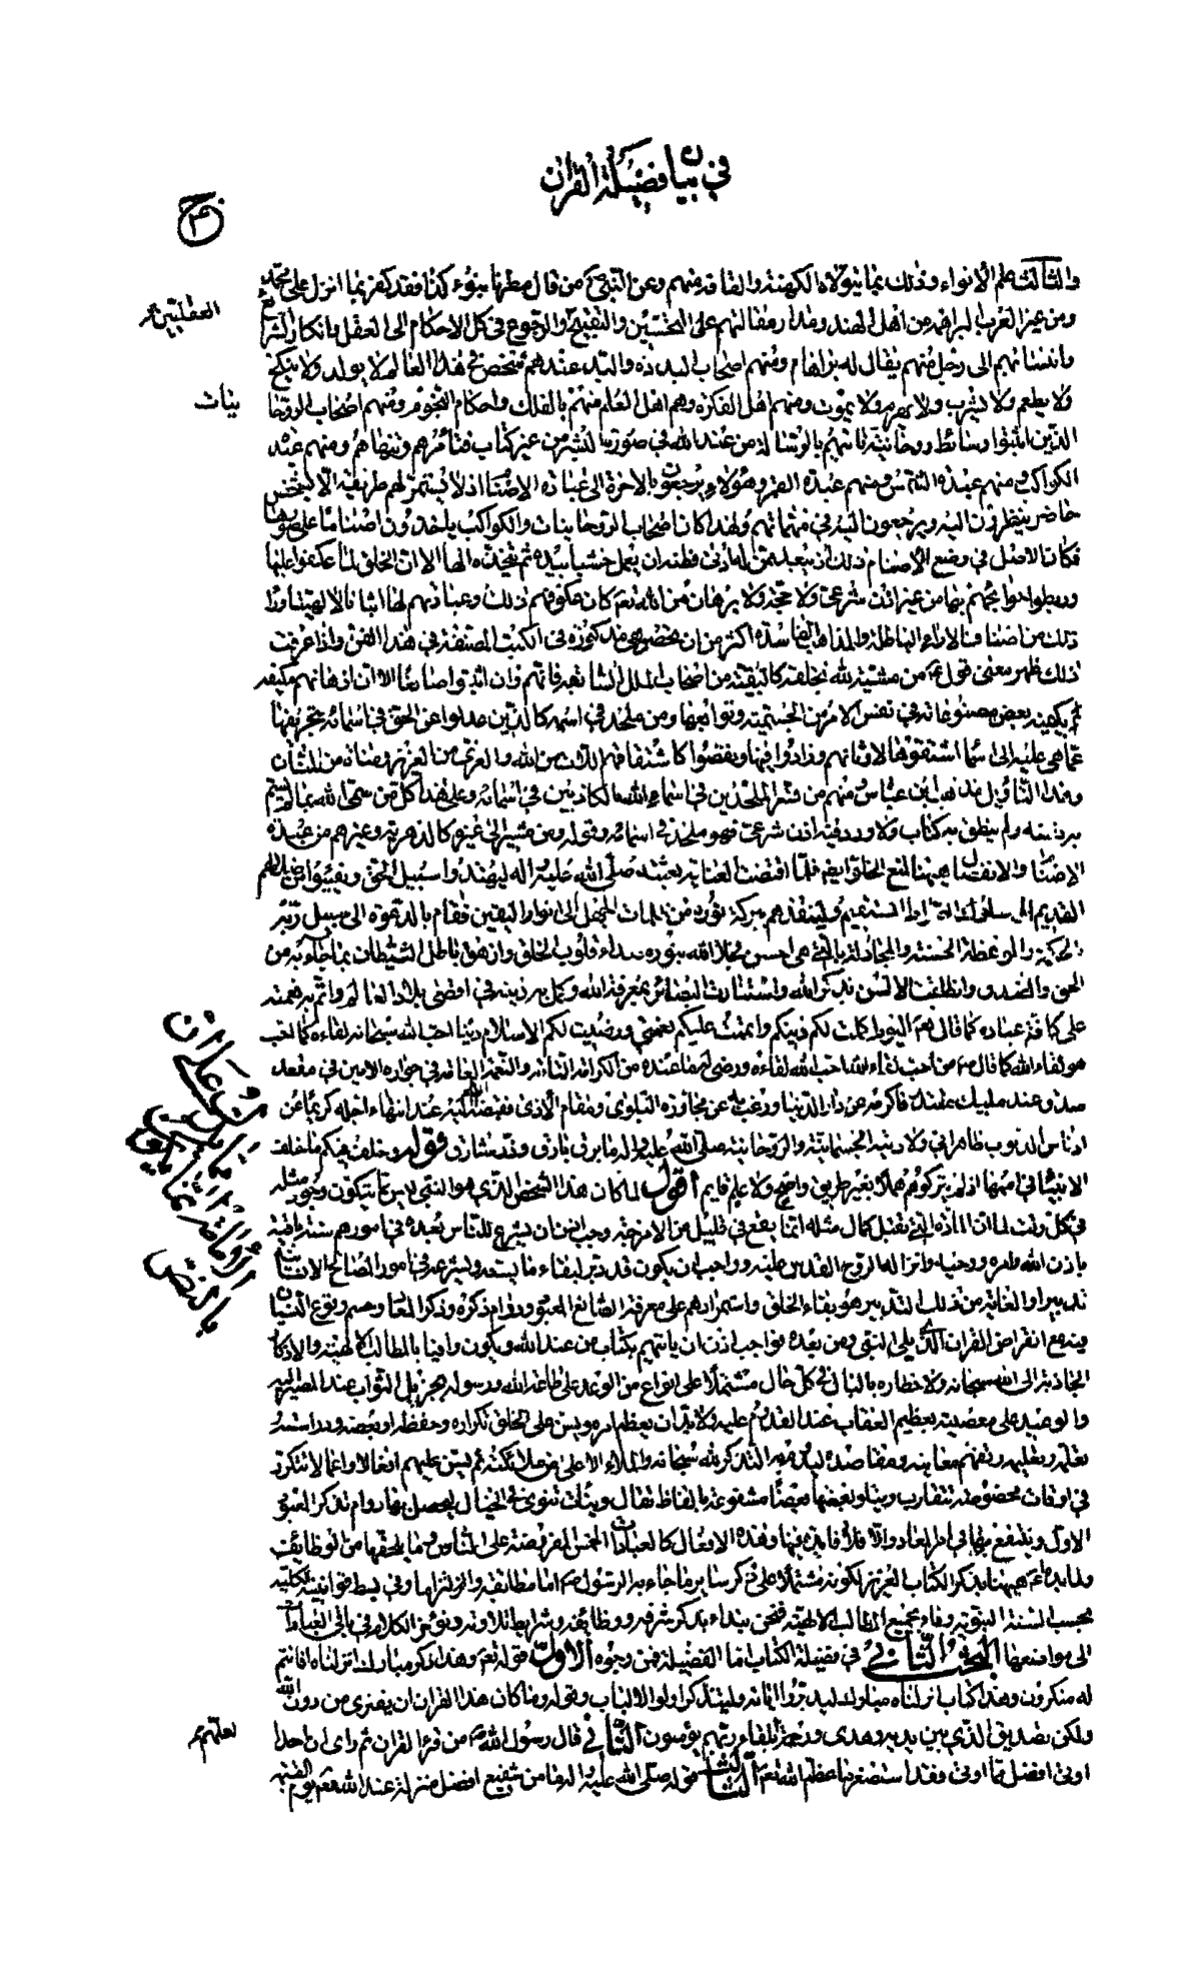 في بيان فضيلة القرآن
والثالث علم الأنواء وذلك مما يتولاه الكهنة والقافة منهم وعن النبي ص من قال مطرنا بنوء كذا فقد كفر بما انزل على محمد
ومن غير العرب البراهمة من اهل الهند ومدار مقالتهم على التحسين والتقبيح والرجوع في كل الاحكام الى العقل وانكار الشرايع
العقليين
وانتسابهم الى رجل منهم يقال له براهام ومنهم اصحاب البددة والبد عندهم شخص في هذا العالم لا يولد ولا ينكح
ولا يطعم ولا يشرب ولا يهرم ولا يموت ومنهم اهل الفكرة وهم اهل العلم منهم بالفلك واحكام النجوم ومنهم اصحاب الروحا
نيات
الذين اثبتوا وسائط روحانية تأتيهم بالرسالة من عند الله في صورة البشر من غير كتاب فتأمرهم وتنهاهم ومنهم عبدة
الكواكب ومنهم عبدة الشمس ومنهم عبدة القمر وهؤلاء يرجعون بالاخرة الى عبادة الاصنام اذ لا يستمر لهم طريقة الا بشخص
حاضر ينظرون اليه ويرجعون اليه في مهماتهم ولهذا كان اصحاب الروحانيات والكواكب يتخذون اصناما على صورها
فكان الاصل في وضع الاصنام ذلك اذ يبعد ممن له ادنى فطنة ان يعمل خشبا بيده ثم يتخذه الها الا ان الخلق لما عكفوا عليها
وربطوا حوائجهم بها من غير اذن شرعي ولا حجة ولا برهان من الله تعم كان عكوفهم ذلك وعبادتهم لها اثباتا لالهيتها وورا
ذلك من اصناف الاراء الباطلة والمذاهب الفاسدة اكثر من ان تحصى وهي مذكورة في الكتب المصنفة في هذا الفن واذا عرفت
ذلك ظهر معنى قوله ع من مشبه لله بخلقه كالبقية من اصحاب الملل السابقة فانهم وان اثبتوا صانعا الا ان اذهانهم مكيفة
له بكيفية بعض مصنوعاته في نفس الامر من الجسمية وتوابعها ومن ملحد في اسمه كالذين عدلوا عن الحق في اسمائه بتحريفها
عما هي عليه الى اسماء اشتقوها لاوثانهم وزادوا فيها ونقصوا كاشتقاقهم اللات من الله والعزى من العزيز ومناة من المنان
وهذا التأويل مذهب ابن عباس ومنهم من فسر الملحدين في اسماء الله بالكاذبين في اسمائه وعلى هذا كل من سمى الله بما لم يتسم
به نفسه ولم ينطق به كتاب ولا ورد فيه اذن شرعي فهو ملحد في اسمائه وقوله ومن مشير الى غيره كالدهرية وغيرهم من عبدة
الاصنام والانفصال ههنا لمنع الخلو ايضا فلما اقتضت العناية بعثته صلى الله عليه واله ليهتدوا سبيل الحق ويفيئوا من ضلالهم
القديم الى سلوك الصراط المستقيم ولينقذهم ببركة نوره من ظلمات الجهل الى انوار اليقين فقام بالدعوة الى سبيل ربه
بالحكمة والموعظة الحسنة والمجادلة بالتي هي احسن فجلا الله بنوره صداء قلوب الخلق وازهق باطل الشيطان بما جاء به من
الحق والصدق وانطلقت الالسن بذكر الله واستنارت البصائر بمعرفة الله وكمل به دينه في اقصى بلاد العالم واتم به نعمته
على كافة عباده كما قال تعم اليوم اكملت لكم دينكم واتممت عليكم نعمتي ورضيت لكم الاسلام دينا احب الله سبحانه لقاءه كما احب
هو لقاء الله كما قال ص من احب لقاء الله احب الله لقاءه ورضي له ما عنده من الكرامة التامة والنعمة العامة في جواره الامين في مقعد
صدق عند مليك مقتدر فاكرمه عن دار الدنيا ورغب به عن مجاورة البلوى ومقام الاذى فقبضه الله اليه عند انتهاء اجله كريما عن
ادناس الذنوب طاهرا في ولادتيه الجسمانية والروحانية صلى الله عليه واله ما برق بارق وذر شارق قوله وخلف فيكم ما خلفت
الانبياء في اممها اذ لم يتركوهم هملا بغير طريق واضح ولا علم قايم اقول لما كان هذا الشخص الذي هو النبي ليس مما يتكون وجود مثله
في كل وقت لما ان المادة التي تقبل كمال مثله انما يقع في قليل من الامزجة وجب اذن ان يشرع للناس بعده في امورهم سنة باقية
باذن الله وامره ووحيه وانزاله الروح القدس عليه وواجب ان يكون قد دبر لبقاء ما يسنه ويشرعه في امور المصالح الانسانية
تدبيرا والغاية من ذلك التدبير هو بقاء الخلق واستمرارهم على معرفة الصانع المعبود ودوام ذكره وذكر المعاد وحسم وقوع النسيان
فيه مع انقراض القرن الذي يلي النبي ومن بعده فواجب اذن ان يأتيهم بكتاب من عند الله ويكون وافيا بالمطالب الالهية والاذكار
الجاذبة الى الله سبحانه ولاخطاره بالبال في كل حال مشتملا على انواع من الوعد على طاعة الله ورسوله بجزيل الثواب عند المصير اليه
والوعيد على معصيته بعظيم العقاب عند القدوم عليه ولا بد ان يعظم امره ويسن على الخلق تكراره وحفظه او بعضه ودراسته
وتعلمه وتعليمه وتفهم معانيه ومقاصده ليدوم به التذكر لله سبحانه والملاء الاعلى من ملائكته ثم يسن عليهم افعالا واعمالا تتكرر
في اوقات مخصوصة تتقارب ويتلو بعضها بعضا مشفوعة بالفاظ تقال ونيات تنوى في الخيال ليحصل بها دوام تذكر المعبود
الاول وينتفع بها في امر المعاد والا فلا فائدة فيها وهذه الافعال كالعبادات الخمس المفروضة على الناس وما يلحقها من الوظائف
ولما بدء تعم ههنا بذكر الكتاب العزيز لكونه مشتملا على ذكر سائر ما جاء به الرسول ص اما مطابقة والتزاما وفي بسط قوانينه الكلية
بحسب السنة النبوية وفاء بجميع المطالب الالهية فنحن نبداء بذكر شرفه ووظائفه وشرائط تلاوته ونؤخر الكلام في باقي العبادات
الى مواضعها البحث الثاني في فضيلة الكتاب اما الفضيلة فمن وجوه الاول قوله تعم وهذا ذكر مبارك انزلناه افانتم
له منكرون وهذا كتاب انزلناه مبارك ليدبروا اياته وليتذكر اولوا الالباب وقوله وما كان هذا القران ان يفترى من دون الله
ولكن تصديق الذي بين يديه وهدى ورحمة بلقاء ربهم يؤمنون الثاني قال رسول الله ص من قرء القران ثم راى ان احدا
لعلهم
اوتى افضل مما اوتى فقد استصغر ما عظم الله تعم الثالث قوله صلى الله عليه واله ما من شفيع افضل منزلة عند الله تعم يوم القيمة